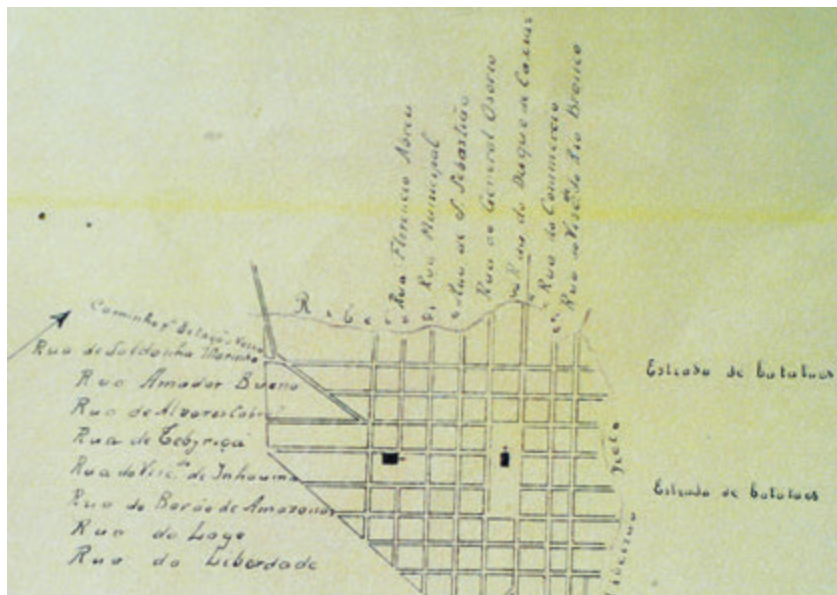 Rua Florencio Abreu
Rua Municipal
Rua de S. Sebastião
Rua do General Osorio
Rua do Duque de Caxias
Rua do Commercio
Rua do Visc.de do Rio Branco
Caminho p.ª Estação Velha
Rua de Saldanha Marinho
Rua Amador Bueno
Rua de Alvares Cabral
Rua de Tebyriçá
Rua do Visc.de de Inhauma
Rua do Barão de Amazonas
Rua do Lage
Rua da Liberdade
Estrada de batataes
Estrada de batataes
Ribeirão